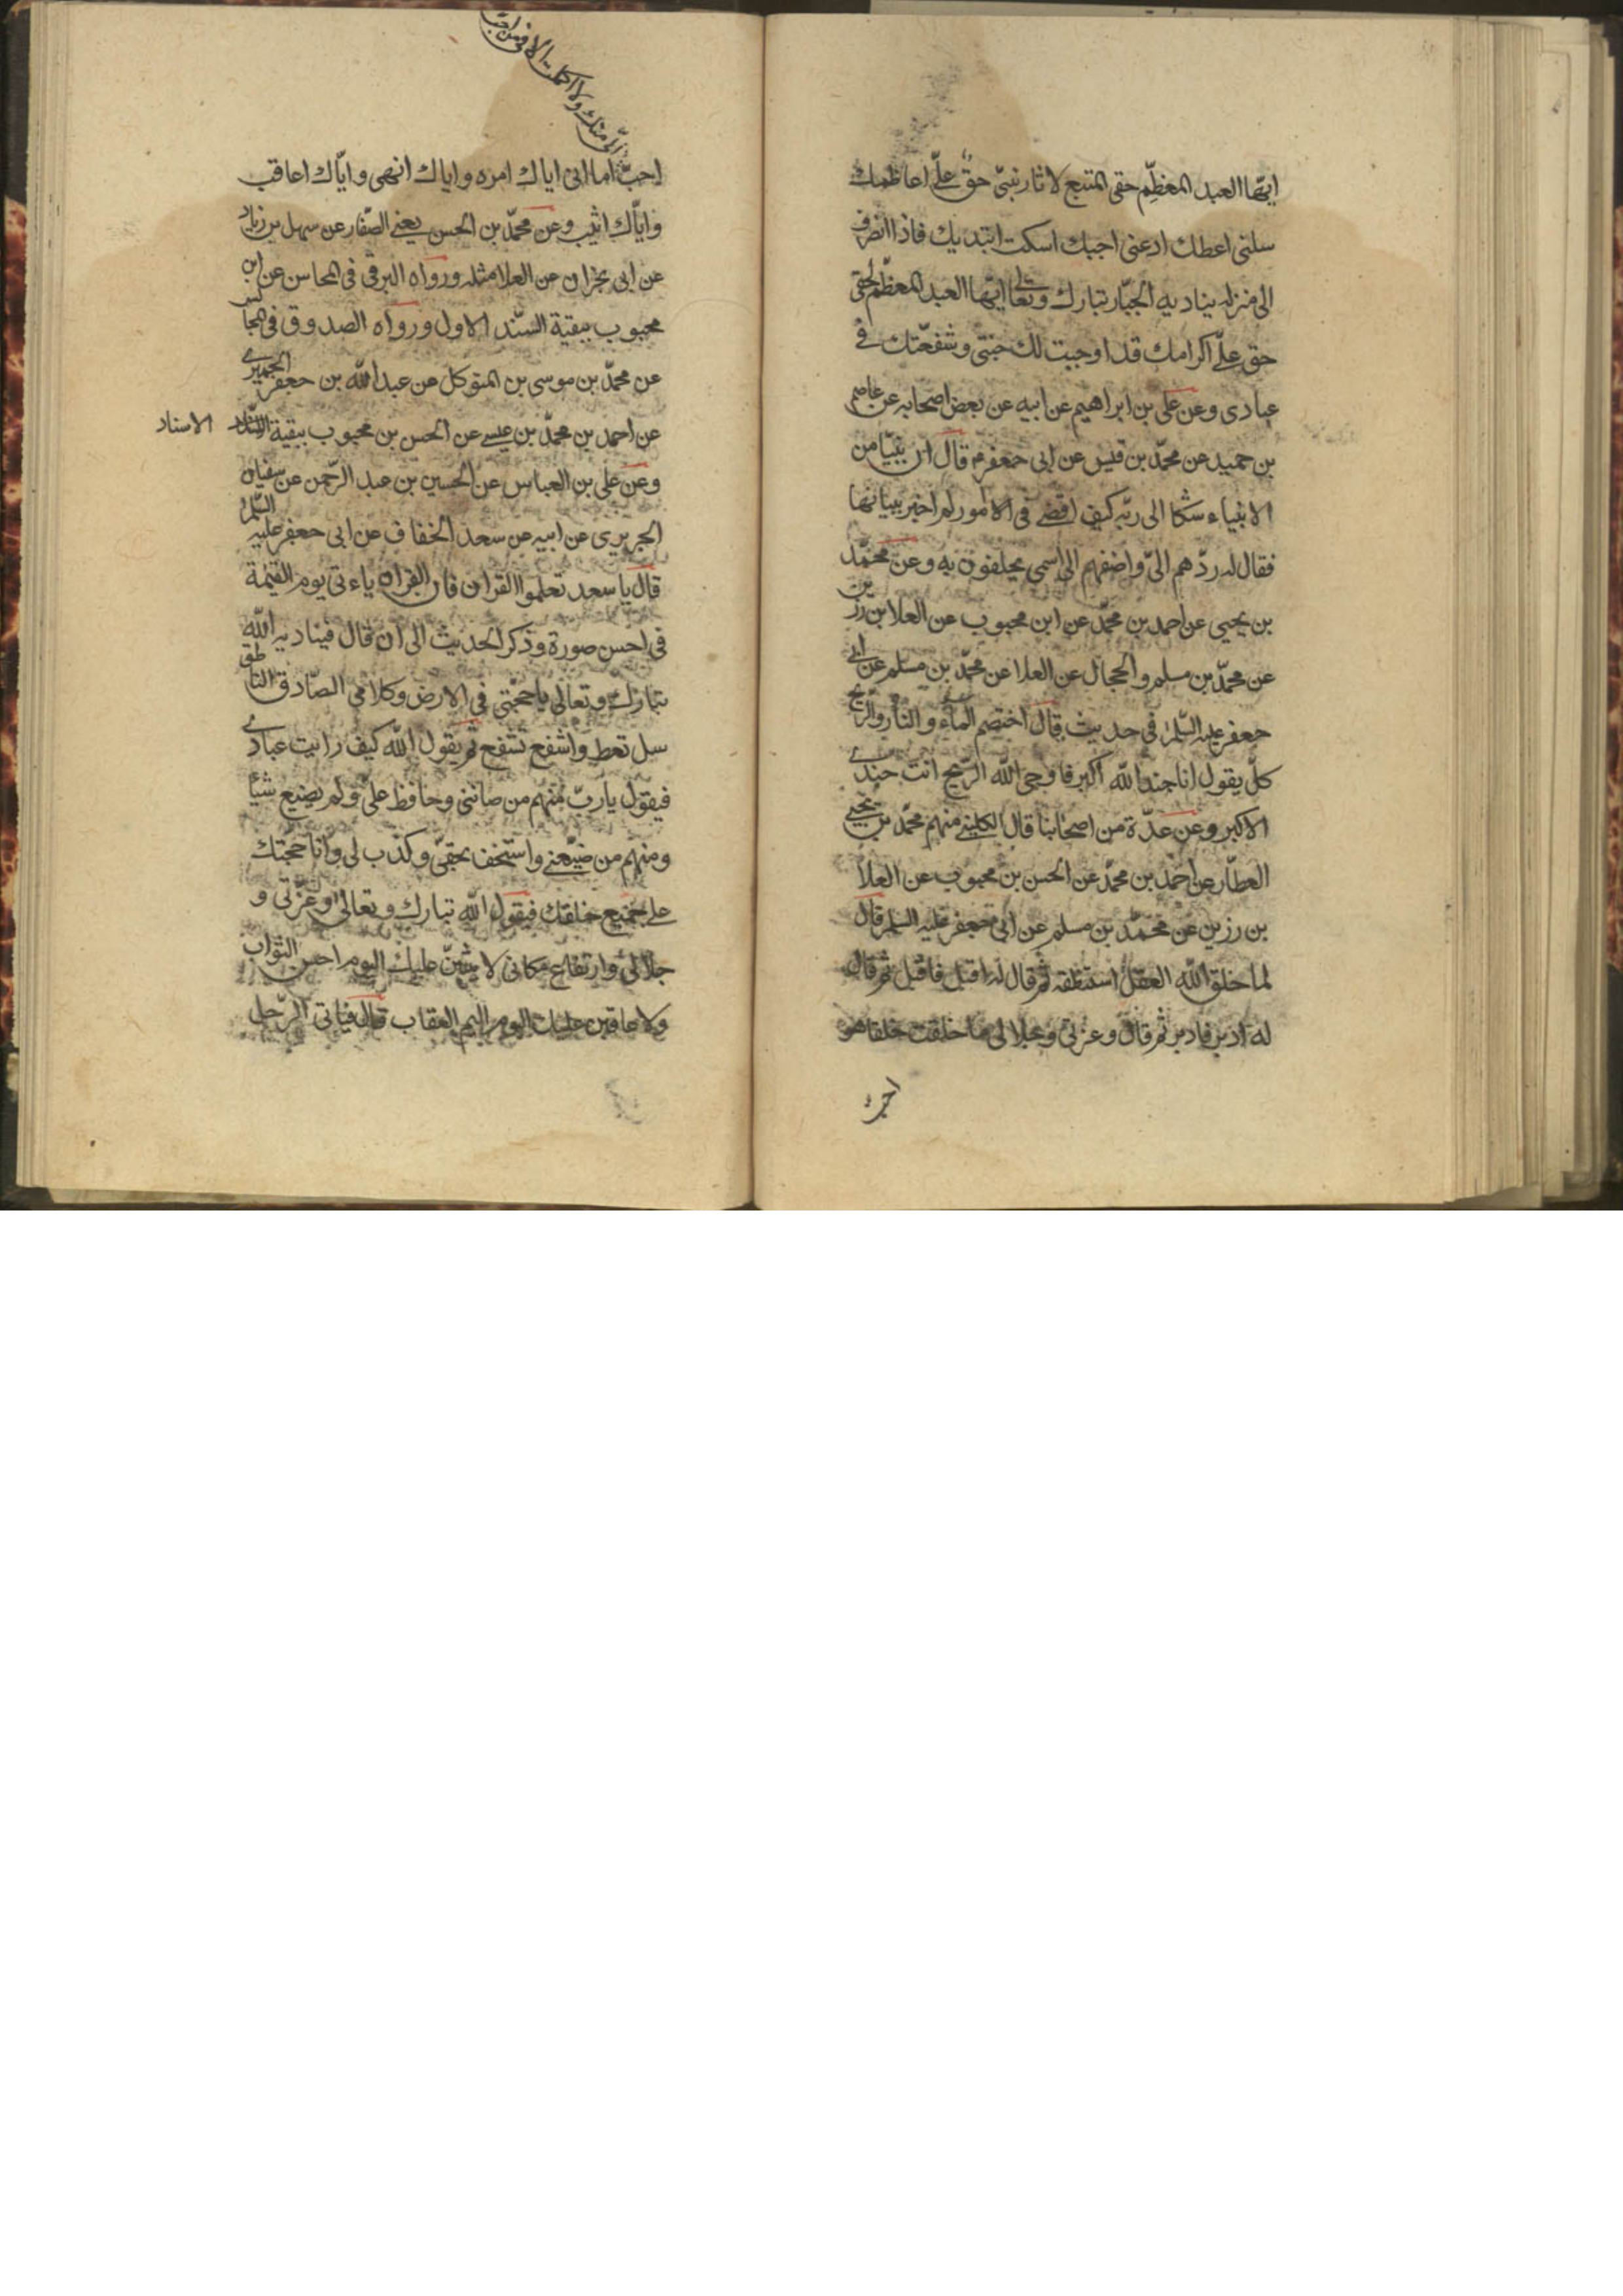 ايّها العبد المعظّم حقى المتبع لاثار نبيّ حق علىّ اعاظمك
سلنى اعطك ادعنى اجبك اسكت ابتديك فاذا انصرف
الى منزله يناديه الجبّار تبارك وتعالى ايّها العبد المعظّم لحقى
حق علىّ اكرامك قد اوجبت لك جنتى وشفعّتك فى
عبادى وعن على بن ابراهيم عن ابيه عن بعض اصحابه عن عاصم
بن حميد عن محمّد بن قيس عن ابى جعفر ع قال ان نبيّا من
الانبياء شكا الى ربّه كيف اقضى فى الامور لم اخبر ببيانها
فقال له ردّهم الىّ واضفهم الى اسمى يحلفون به وعن محمّد
بن يحيى عن احمد بن محمّد عن ابن محبوب عن العلا بن رزين
عن محمّد بن مسلم والحجال عن العلا عن محمّد بن مسلم عن ابى
جعفر عليه السّلم فى حديث قال اختصم الماء والنار والرّيح
كلّ يقول انا جند الله اكبر فاوحى الله الرّيح انت جندى
الاكبر وعن عدّة من اصحابنا قال الكلينى منهم محمّد بن يحيى
العطّار عن احمد بن محمّد عن الحسن بن محبوب عن العلا
بن رزين عن محمّد بن مسلم عن ابى جعفر عليه السلم قال
لما خلق الله العقل استنطقه ثم قال له اقبل فاقبل ثم قال
له ادبر فادبر ثم قال وعزتى وجلالى ما خلقت خلقا هو
احبّ
الىّ منك ولا اكملت الا فيمن احبّ
احبّ اما انى اياك امره واياك انهى وايّاك اعاقب
وايّاك اثيب وعن محمّد بن الحسن يعنى الصّفار عن سهل بن زياد
عن ابى نجران عن العلا مثله ورواه البرقى فى المحاسن عن ابن
محبوب ببقية السّند الاول ورواه الصدوق فى المجالس
عن محمّد بن موسى بن المتوكل عن عبد الله بن جعفر الحميرى
عن احمد بن محمّد بن عيسى عن الحسن بن محبوب ببقية
الاسناد
وعن على بن العباس عن الحسين بن عبد الرّحمن عن سفيان
الجريرى عن ابيه عن سعد الخفاف عن ابى جعفر عليه السّلم
قال يا سعد تعلموا القران فان القران ياءتى يوم القيمة
فى احسن صورة وذكر الحديث الى ان قال فيناديه الله
تبارك وتعالى يا حجّتى فى الارض وكلامى الصّادق الناطق
سل تعط واشفع تشفع ثم يقول الله كيف رايت عبادى
فيقول يا ربّ منهم من صاننى وحافظ علىّ ولم يضيع شيئا
ومنهم من ضيّعنى واستخف بحقىّ وكذّب لى وانا حجّتك
على جميع خلقك فيقول الله تبارك وتعالى وعزّتى و
جلالى وارتفاع مكانى لاثيبنّ عليك اليوم احسن الثّواب
ولاعاقبن عليك اليوم اليم العقاب قال فياتى الرّجل